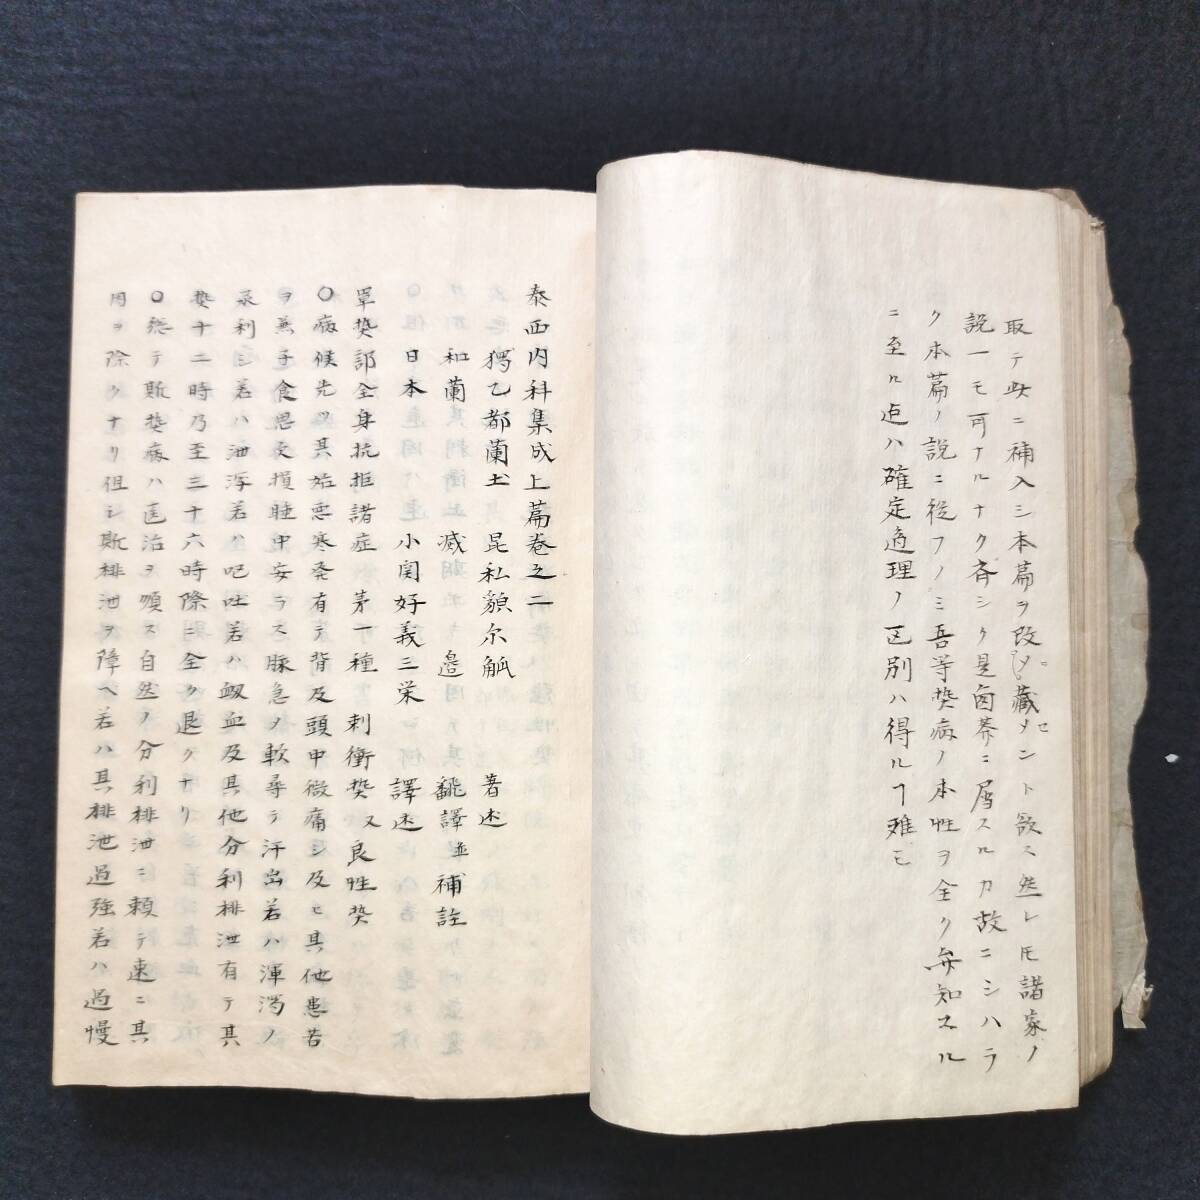 取テ此ニ補入シ本篇ヲ改メニ藏メセント欲ス然レ𪜈諸家ノ
説一モ可ナルナク斉シク是鹵莽ニ屑スルカ故ニシハラ
ク本篇ノ説ニ従フノミ吾等㷉病ノ本性ヲ全ク弁知スル
ニ至ル迠ハ確定適理ノ区別ハ得ルヿ難モ
泰西内科集成上篇巻之二
獨乙都蘭土 昆私貌尓觚 著述
和蘭 减 邉 飜譯並補註
日本 小関好義三栄 譯述
單㷉部全身抗拒諸症茅一種 刺衝㷉又良性㷉
〇病候先ツ其始悪寒発有テ背及頭中微痛シ及ヒ其他患苦
ヲ兼子食思受損睡中安ラス脈急メ軟尋テ汗出若ハ渾濁ノ
尿利シ若ハ泄瀉若ハ吧吐若ハ衂血及其他分利排泄有テ其
㷉十二時乃至三十六時際ニ全ク退クナリ
〇惣テ斯㷉病ハ医治ヲ煩ス自然ノ分利排泄ニ頼テ速ニ其
因ヲ除クナリ但シ斯排泄ヲ障ヘ若ハ其排泄過強若ハ過慢